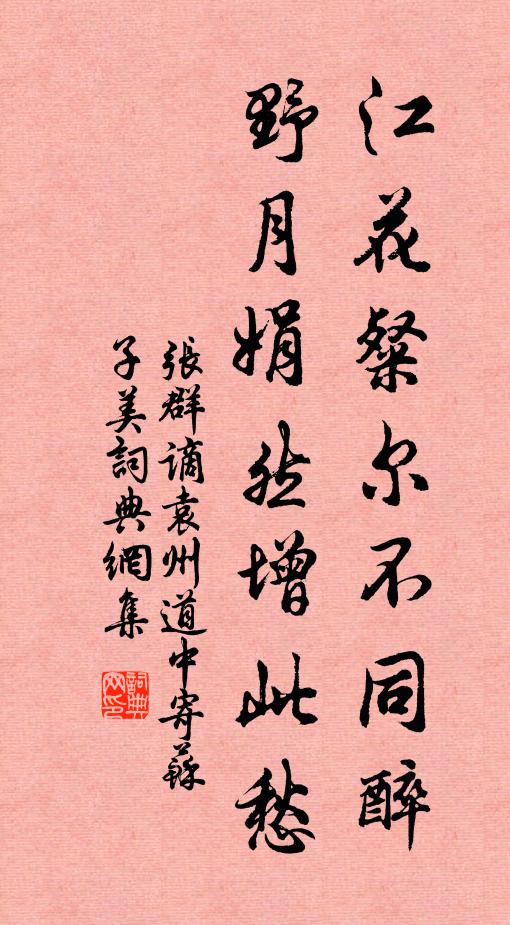 江花粲尔不同醉
野月娟然增此愁
張群谪袁州道中寄蘇
子美詞典網集
詞典
网印